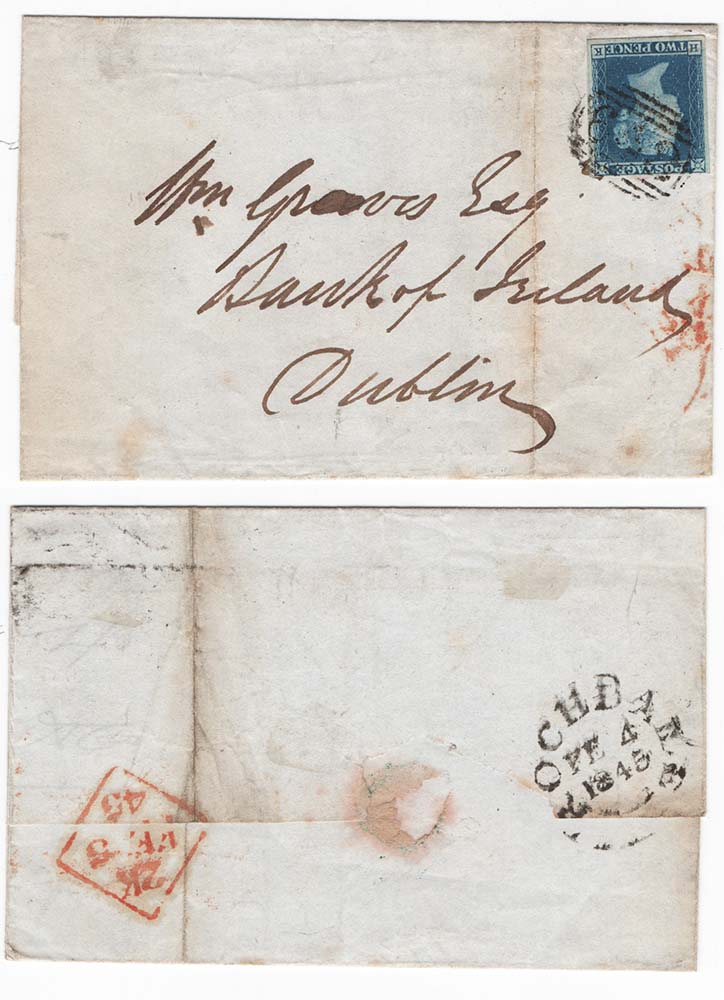 POSTAGE
TWO PENCE
H K
Wm Graves Esq
Bank of Ireland
Dublin
FE 4
1845
FE 5
45